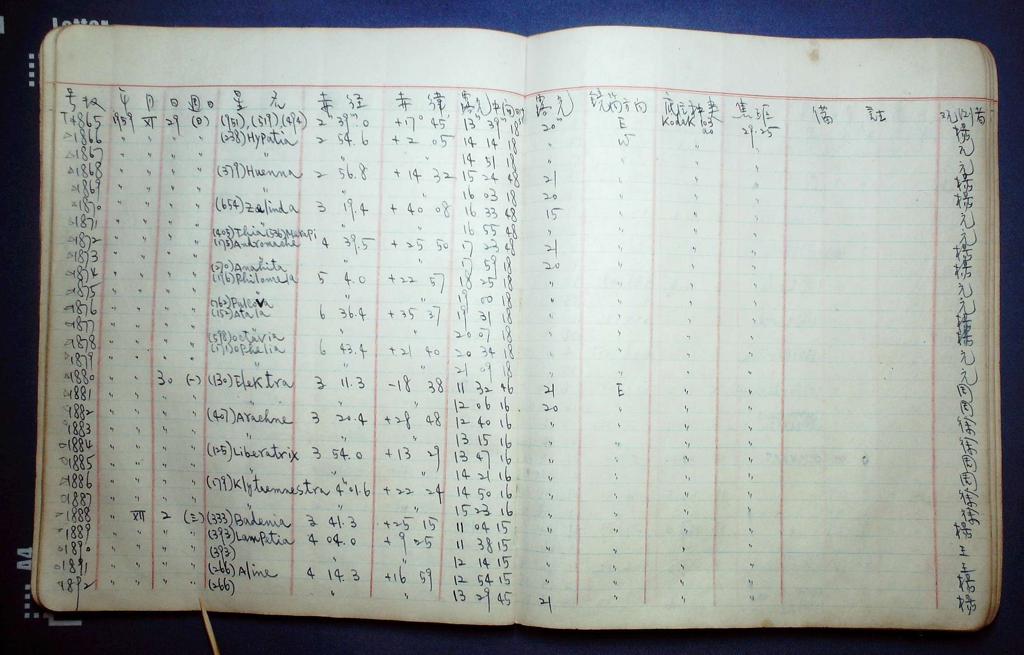 Letter
号数 年 月 日 週日 星名 赤経 赤緯 露光中间时 露光 鏡筒方向 底片种类 焦距 備註 观测者
1865 1959 XI 29 (日) (951),(519)(494) 2 39.0 +17° 45' 13 39 18 20 E Kodak 103 a0 29.25 楊
1866 " " " " (238)Hypatia 2 54.6 +2 05 14 14 18 " W " " 元
1867 " " " " " 14 51 18 " " " " 元
1868 " " " " (379)Huenna 2 56.8 +14 32 15 24 48 21 " " " 楊
1869 " " " " " 16 03 18 20 " " " 楊
1870 " " " " (654)Zelinda 3 19.4 +40 08 16 33 48 15 " " " 元
1871 " " " " " 16 55 48 " " " " 元
(405)Thia (536)Merapi
1872 " " " " (175)Andromache 4 39.5 +25 50 17 23 48 21 " " " 楊
1873 " " " " " 17 59 18 20 " " " 楊
(270)Anahita
1874 " " " " (196)Philomela 5 4.0 +22 57 18 25 18 " " " " 元
1875 " " " " " " " " " 元
(762)Pulcova
1876 " " " " (152)Atala 6 36.4 +35 37 19 31 18 " " " " 楊
1877 " " " " " 20 07 18 " " " " 楊
(598)Octavia
1878 " " " " (171)Ophelia 6 43.4 +21 40 20 34 18 " " " " 元
1879 " " " " " 21 09 18 " " " " 元
1880 " " 30 (一) (130)Elektra 3 11.3 -18 38 11 32 46 21 E " " 田
1881 " " " " " 12 06 16 20 " " " 田
1882 " " " " (407)Arachne 3 20.4 +28 48 12 40 16 " " " "
1883 " " " " " 13 15 16 " " " "
1884 " " " " (125)Liberatrix 3 54.0 +13 29 13 47 16 " " " " 田
1885 " " " " " 14 21 16 " " " " 田
1886 " " " " (179)Klytaemnestra 4 01.6 +22 24 14 50 16 " " " "
1887 " " " " " 15 23 16 " " " "
1888 " XII 2 (三) (333)Badenia 3 41.3 +25 15 11 04 15 " " " " 楊
1889 " " " " (393)Lampetia 4 04.0 +9 25 11 38 15 " " " " 王
1890 " " " " (393) " " 12 14 15 " " " " 王
1891 " " " " (266)Aline 4 14.3 +16 59 12 54 15 " " " " 楊
1892 " " " " (266) " " 13 29 45 21 " " " 楊
A4